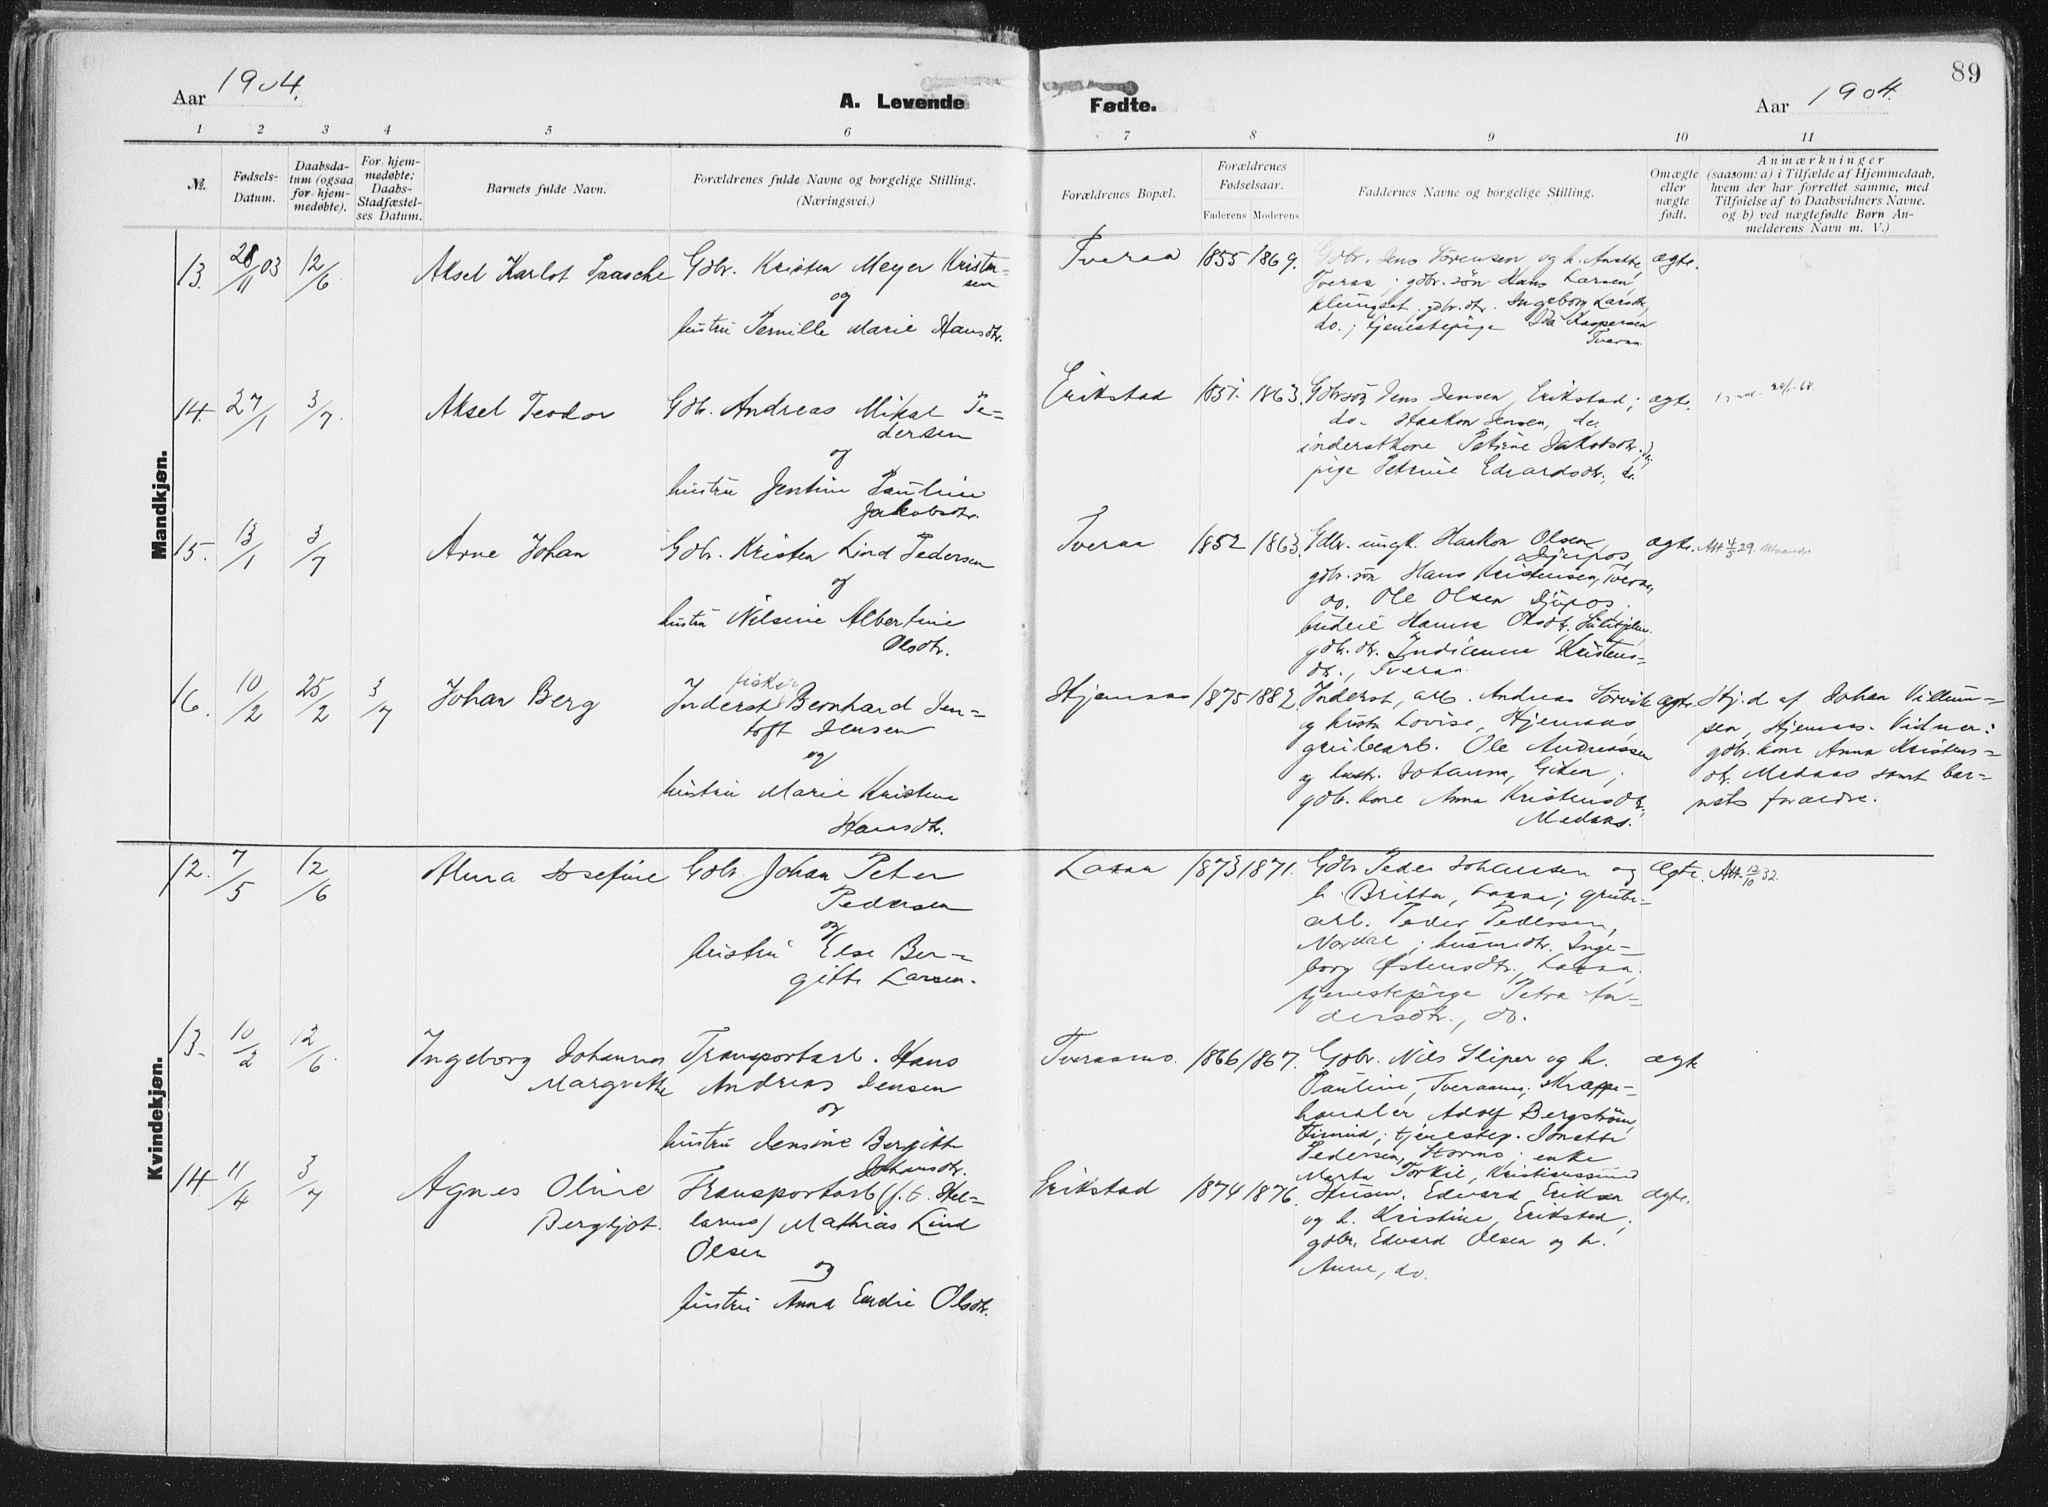 89
Aar 1904.
A. Levende
Fødte.
Aar 1904.
1 2 3 4 5 6 7 8 9 10 11
№.
Fødsels-
Datum.
Daabsda-
tum (ogsaa
for hjem-
medøbte).
For hjem-
medøbte:
Daabs-
Stadfæstel-
ses Datum.
Barnets fulde Navn.
Forældrenes fulde Navne og borgelige Stilling.
(Næringsvei.)
Forældrenes Bopæl.
Forældrenes
Fødselsaar.
Faderens Moderens
Faddernes Navne og borgelige Stilling.
Omægte
eller
nægte
født.
Anmærkninger
(saasom: a) i Tilfælde af Hjemmedaab,
hvem der har forrettet samme, med
Tilføielse af to Daabsvidners Navne.
og b) ved nægtefødte Børn An-
melderens Navn m. V.)
Mandkjøn.
13. 28/11 03 12/6 Aksel Karlot Paasche
Gdbr. Kristen Meyer Kristen-
sen
og
hustru Pernille Marie Hansdtr.
Tveraa 1855 1869.
Gdbr. Jens Sørensen og h. Anette,
Tveraa; gdbr. søn Hans Larsen,
Klungset; gdbr. dtr. Ingeborg Larsdtr,
do.; tjenestepige Ida Kaspersen
Tveraa
ægte.
14. 27/1 3/7. Aksel Teodor
Gdbr. Andreas Mikal Pe-
dersen
og
hustru Jentine Pauline
Jakobsdtr.
Erikstad 1857. 1863.
Gdbrsøn Jens Jensen, Erikstad;
do. Haakon Jensen, do;
inderstkone Petrine Jakobsdtr.;
pige Petrine Edvardsdtr., do.
ægte.
15. 13/1 3/7 Arne Johan
Gdbr. Kristen Lind Pedersen
og
hustru Nilsine Albertine
Olsdtr.
Tveraa 1852 1863.
Gdbr. ungk. Haakon Olsen
Djupos,
gdbr. søn Hans Kristensen, Tveraa,
do. Ole Olsen Djupos.
budeie Hanna Olsdtr,
gdbr. dtr. Indianna Kristens-
dtr., Tveraa.
ægte. Att 4/3 29.
16. 10/2 25/2 3/7 Johan Berg
fisker
Inderst Bernhard Jen-
toft Jensen
og
hustru Marie Kristine
Hansdtr.
Hjemaas 1875 1882.
Inderst, arb. Andreas Sørvik
og hustru Lovise, Hjemaas,
grubearb. Ole Andreassen
og hustr. Johanna, Giken;
gdbr. kone Anna Kristensdtr.
Medaas.
ægte.
Hj.d af Johan Villum-
sen, Hjemaas. Vidner:
gdbr. kone Anna Kristens-
dtr, Medaas samt bar-
nets forældre.
Kvindekjøn.
12. 7/5 12/6 Alma Josefine
Gdbr. Johan Peter
Pedersen
og
hustru Else Ber-
gitte Larsen.
Laxaa 1873 1871.
Gdbr Peder Johansen og
h. Britta, Laxaa; grube-
arb. Peder Pedersen,
Nordal; husmdtr. Inge-
borg Østensdtr., Laxaa.
tjenestepige Petra An-
dersdtr., do.
ægte. Att. 12/10 32.
13. 10/2 12/6. Ingeborg Johanna
Margrethe
Transportarb. Hans
Andreas Jensen
og
hustru Jensine Bergitte
Johansdtr.
Tveraamo. 1866 1867.
Gdbr. Nils Sliper og h.
Pauline, Tveraamo; skrappe-
handler Adolf Bergström,
Finneid; tjenestep. Jonette
Pedersen, Stormo; enke
Marta Torkil, Kristianssund
ægte
14. 11/4 3/7 Agnes Oline
Bergljot.
Transportarb (f. t. Hel-
larmo) Mathias Lind
Olsen
og
hustru Anna Emelie Olsdtr.
Erikstad 1874 1876.
Husm. Edvard Eriksen
og h. Kristine, Erikstad;
gdbr. Edvard Olsen og h.
Anne, do.
ægte.